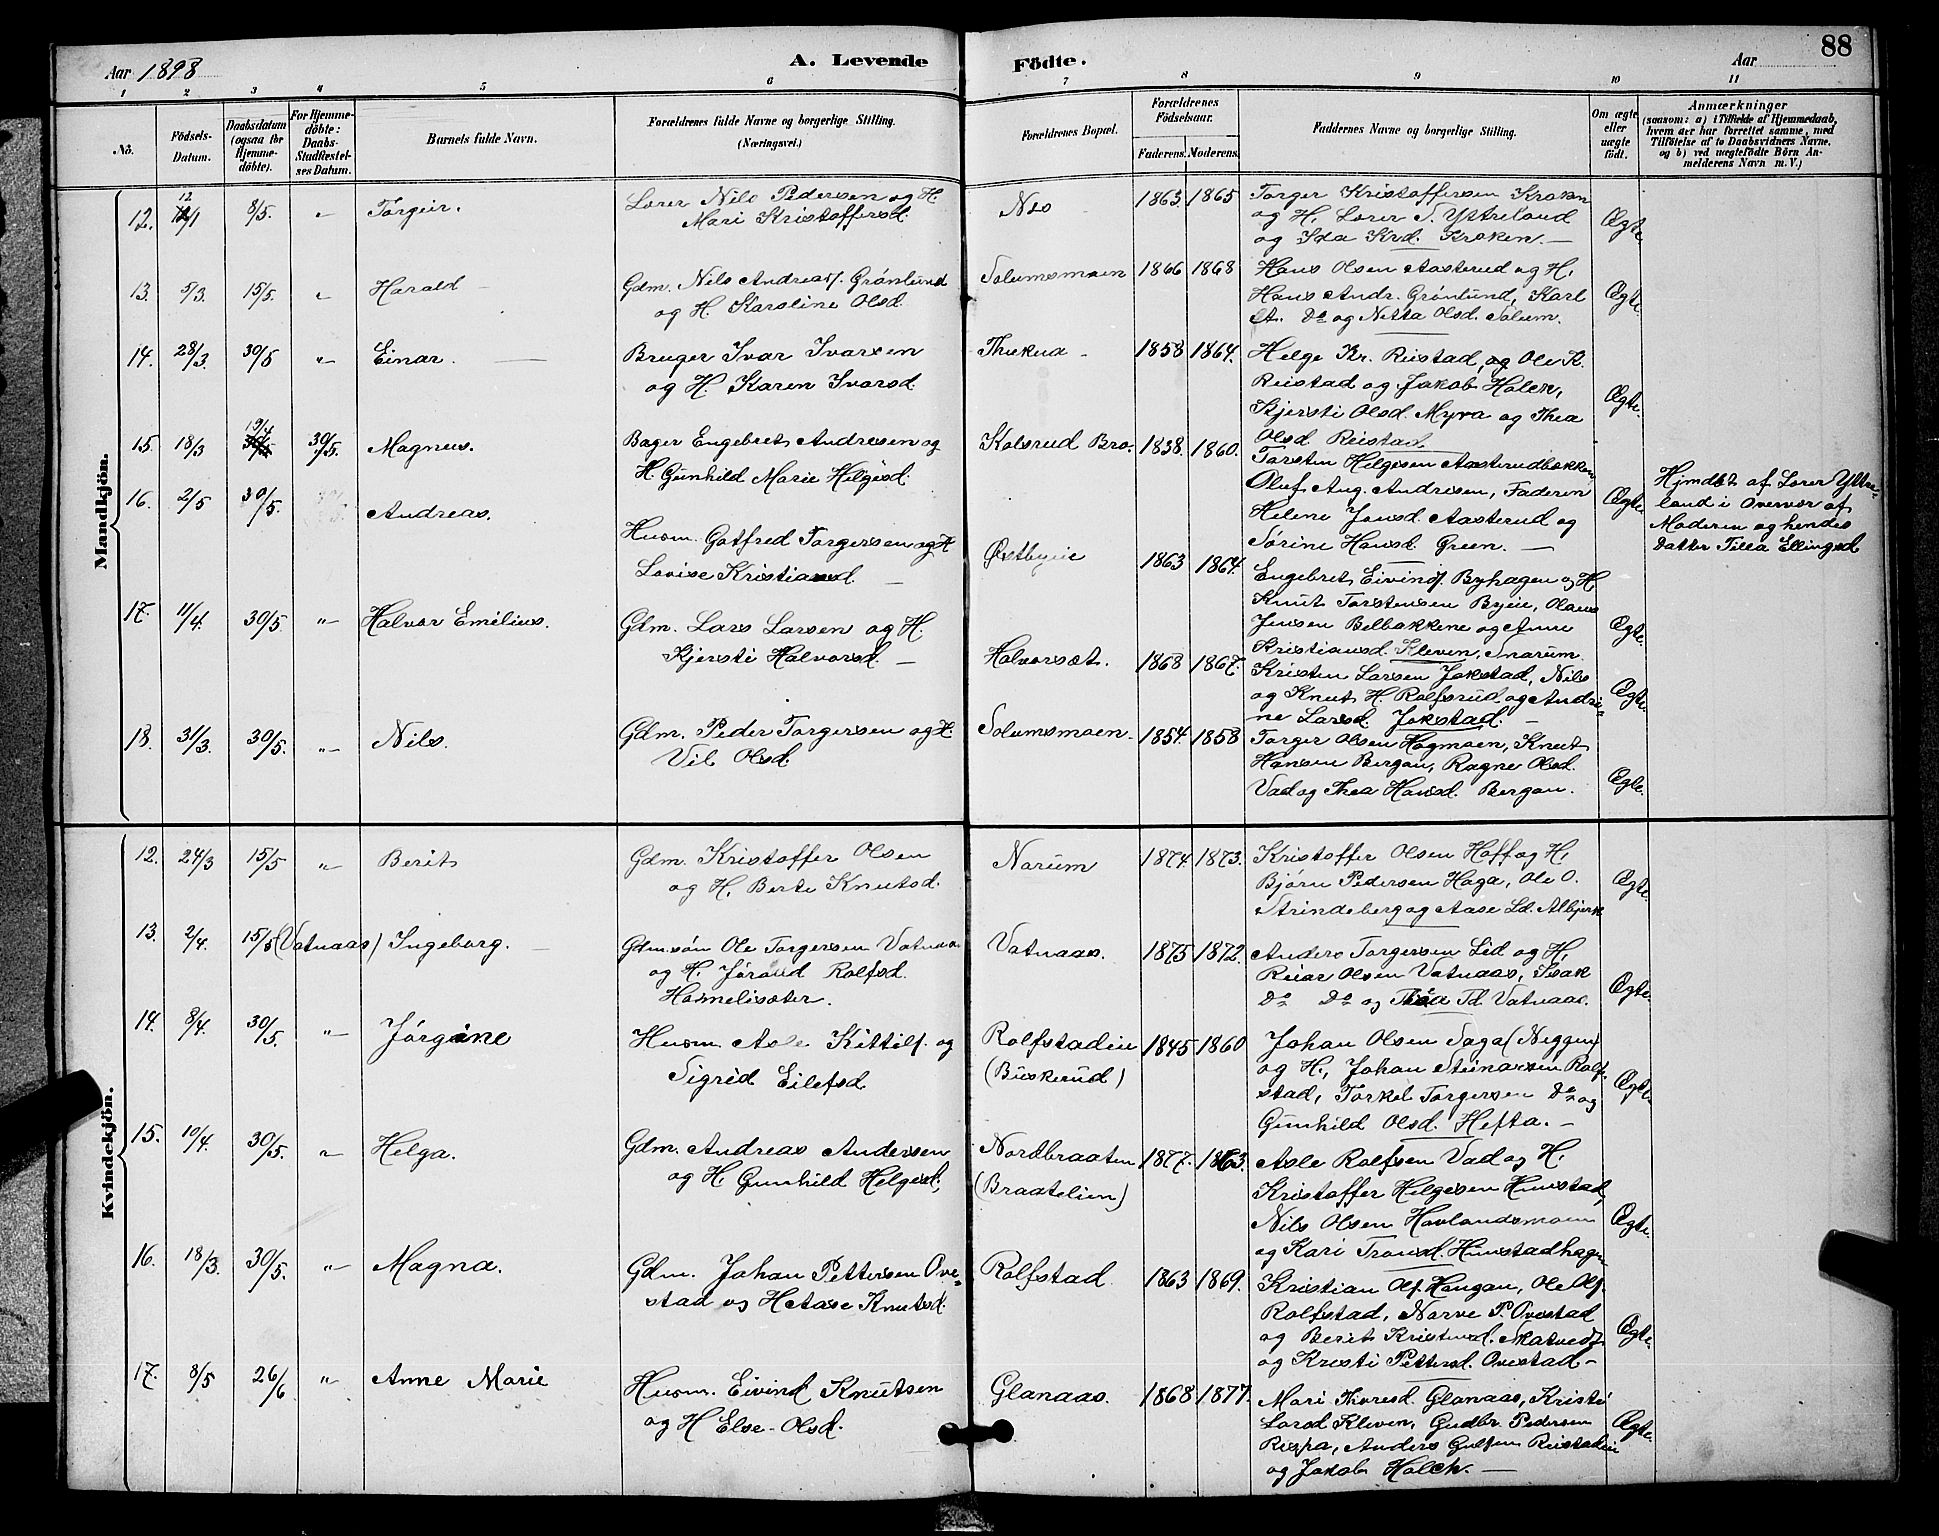 Aar 1898
A. Levende
Födte.
Aar
88
1 2 3 4 5 6 7 8 9 10 11
No.
Födsels-
Datum.
Daabsdatum
(ogsaa for
Hjemme-
döbte).
For Hjemme-
döbte:
Daabs-
Stadfæstel-
ses Datum.
Barnets fulde Navn.
Forældrenes fulde Navne og borgerlige Stilling.
(Næringsvei.)
Forældrenes Bopæl.
Forældrenes
Födselsaar.
Faderens. Moderens.
Faddernes Navne og borgerlige Stilling.
Om ægte
eller
uægte
födt.
Anmærkninger
(saasom: a) i Tilfælde af Hjemmedaab,
hvem der har forrettet samme, med
Tilföielse af to Daabsvidners Navne,
og b) ved uægtefödte Börn An-
melderens Navn m. V.)
Mandkjön.
12. 12/1 8/5. „ Torgeir.
Lærer Nils Pedersen og H.
Mari Kristoffersd.
Nes 1863. 1865
Torger Kristoffersen Kroken
og H, Lærer S. Ytreland
og Ida Krd. Kroken. —
Ægte
13. 5/3. 15/5. „ Harald —
Gdm. Nils Andreasf. Grønlund
og H. Karoline Olsd.
Solumsmoen 1866 1868
Hans Olsen Aasterud og H,
Hans Andr. Grønlund, Karl
A. Do og Netta Olsd. Solum.
Ægte.
14. 28/3. 30/5 „ Einar. —
Bruger Ivar Ivarsen
og H. Karen Ivarsd.
1858 1864.
Helge Kr. Reistad, og Ole K.
Reistad og Jakob Holck,
Kjersti Olsd. Myra og Thea
Olsd. Reistad.
Ægte.
15. 18/3 19/4 30/5. Magnus.
Bager Engebret Andresen og
H. Gunhild Marie Helgesd.
Kolsrud Bro. 1838. 1860.
Torsten Helgesen Aasterudbakken
Oluf Aug. Andresen, Faderen
Helene Jonsd. Aasterud og
Sørine Hansd. Green. —
Ægte
Hjmdbt af Lærer Yttre-
land i Overvær af
Moderen og hendes
Datter Tilla Ellingsd
16. 2/5 30/5. Andreas.
Husm. Gotfred Torgersen og H
Lovise Kristiansd. —
Østbyeie 1863 1864.
Engebret Eivindf. Byhagen og H
Knut Torstensen Byeie, Olaus
Jensen Belbakkene og Anne
Kristiansd. Kleven, Snarum.
Ægte.
17. 11/4. 30/5. „ Halvor Emilius.
Gdm. Lars Larsen og H.
Kjersti Halvorsd. —
Halvorsæt. 1868 1867.
Kristen Larsen Jokstad, Nils
og Knut H. Rolfsrud og Andri-
ne Larsd. Jokstad. —
Ægte.
18. 31/3. 30/5. „ Nils.
Gdm. Peder Torgersen og H.
Vil Olsd.
Solumsmoen. 1854. 1858
Torger Olsen Hagmoen, Knut
Hansen Bergan, Ragne Olsd.
Vad og Thea Hansd. Bergan.
Ægte.
Kvindekjön.
12. 24/3 15/5 „ Berit
Gdm. Kristoffer Olsen
og H, Berte Knutsd.
Norum 1874. 1873.
Kristoffer Olsen Hoff og H,
Bjørn Pedersen Haga, Ole O.
Strindeberg og Aase Ld. Albjerk
Ægte.
13. 2/4. 15/5 (Vatnaas) Ingeborg. —
Gdm.søn Ole Torgersen Vatnaas
og H. Jørand Rolfsd.
Hamelisæter.
Vatnaas. 1875 1872.
Anders Torgersen Lid og H,
Reiar Olsen Vatnaas, Isak
Do Do og Thea Td. Vatnaas.
Ægte.
14. 8/4. 30/5. „ Jørgine
Husm. Asle Kittilf. og
Sigrid Eilefsd.
Rolfstadeie
(Buskerud)
1845 1860
Johan Olsen Saga (Neggen)
og H, Johan Steinarsen Rolf-
stad, Torkel Torgersen Do og
Gunhild Olsd. Hefta. —
Ægte.
15. 10/4. 30/5. „ Helga.
Gdm. Andreas Andersen
og H, Gunhild Helgesd,
Nordbraaten
(Braatelien)
1877. 1863.
Asle Rolfsen Vad og H.
Kristoffer Helgesen Hunstad,
Nils Olsen Hovlandsmoen
og Kari Trondsd. Hunstadhagen
Ægte.
16. 18/3. 30/5. „ Magna.
Gdm. Johan Pettersen Ove-
stad og H. Aase Knutsd.
Rolfstad 1863 1869.
Kristian Olf. Haugan, Ole Olf.
Rolfstad, Narve P. Ovestad
og Berit Kristensd. Skatvedt
og Kristi Pettersd. Ovestad —
Ægte.
17. 8/5 26/6 „ Anne Marie
Husm. Eivind Knutsen
og H Else Olsd.
Glanaas. 1868 1877.
Mari Thoresd. Glanaas, Kristi
Larsd Kleven, Gudbr. Pedersen
Anders Reistadeie
og Jakob Holck. —
Ægte.